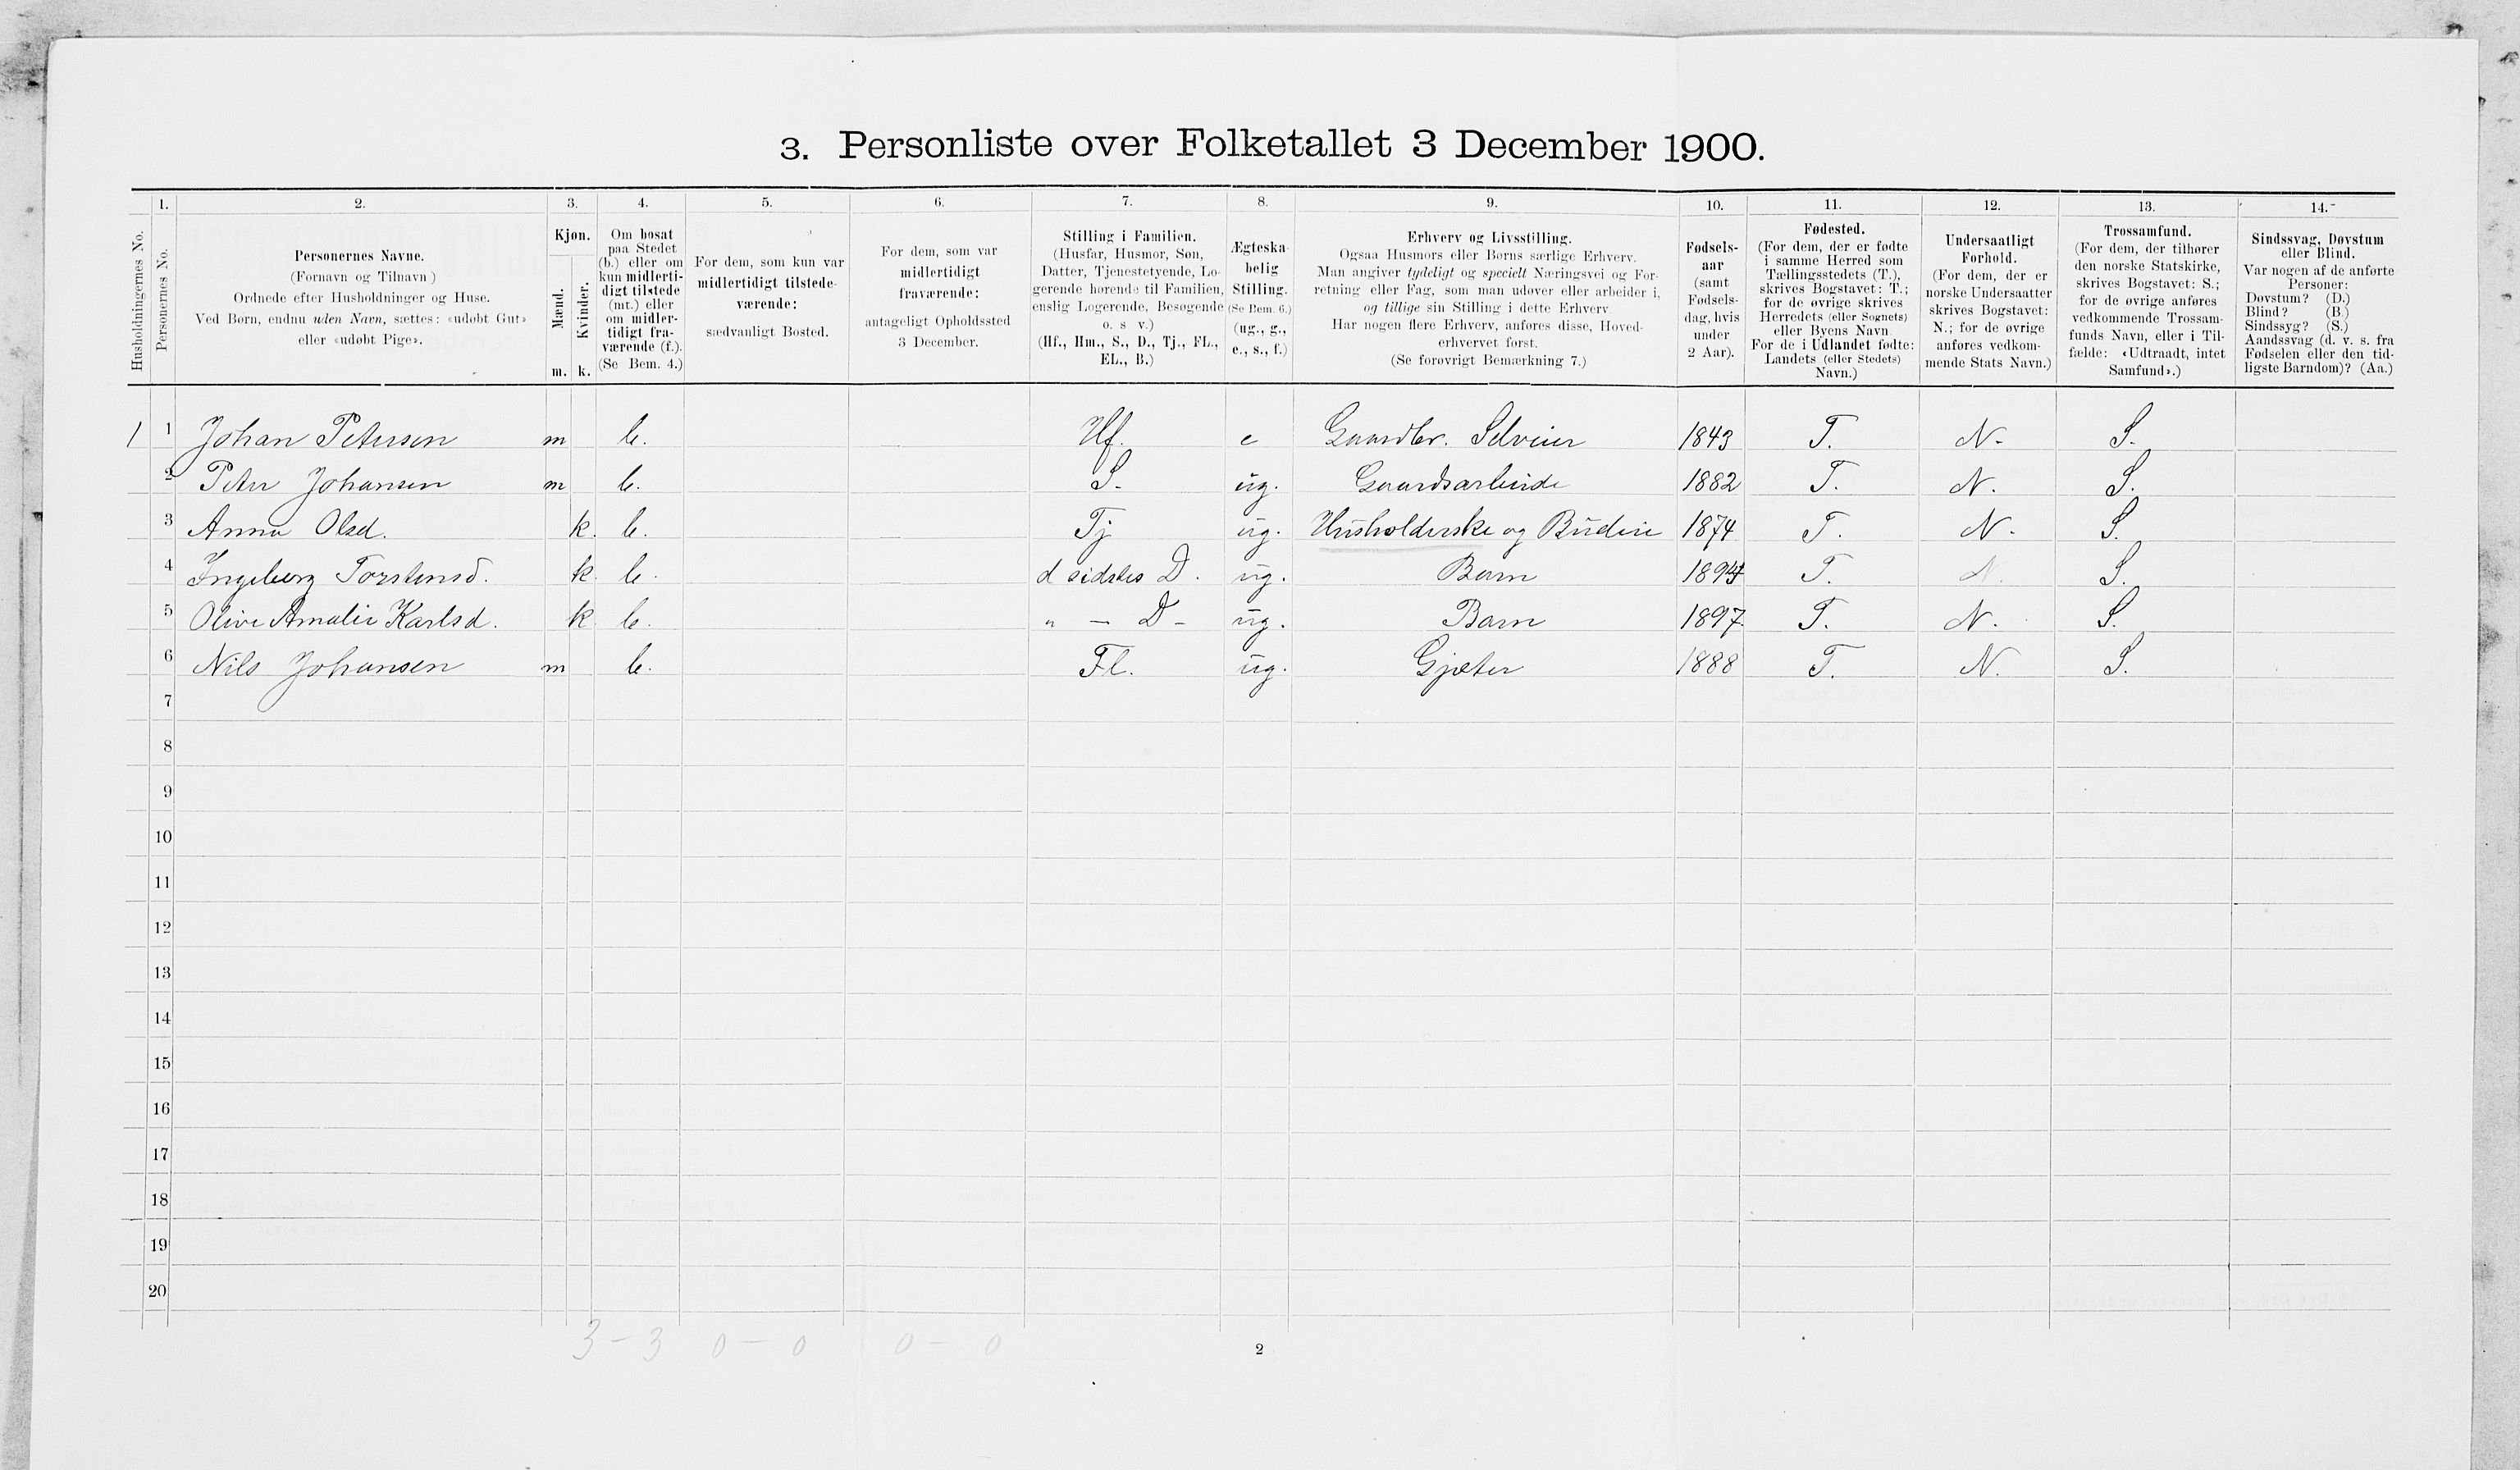 3. Personliste over Folketallet 3 December 1900.
1. 2. 3. 4. 5. 6. 7. 8. 9. 10. 11. 12. 13. 14.
Husholdningernes No.
Personernes No.
Personernes Navne.
(Fornavn og Tilnavn)
Ordnede efter Husholdninger og Huse.
Ved Børn, endnu uden Navn, sættes: «udøbt Gut»
eller «udøbt Pige».
Kjøn.
Mænd.
Kvinder.
m. k.
Om bosat
paa Stedet
(b.) eller om
kun midlerti-
digt tilstede
(mt.) eller
om midler-
tidigt fra-
værende (f.).
(Se Bem. 4.)
For dem, som kun var
midlertidigt tilstede-
værende:
sædvanligt Bosted.
For dem, som var
midlertidigt
fraværende:
antageligt Opholdssted
3 December.
Stilling i Familien.
(Husfar, Husmor, Søn,
Datter, Tjenestetyende, Lo-
gerende hørende til Familien,
enslig Logerende, Besøgende
o. s v.)
(Hf., Hm., S., D., Tj., FL.,
EL., B.)
Ægteska-
belig
Stilling.
(Se Bem. 6.)
(ug., g.,
e., s., f.)
Erhverv og Livsstilling.
Ogsaa Husmors eller Børns særlige Erhverv.
Man angiver tydeligt og specielt Næringsvei og For-
retning eller Fag, som man udøver eller arbeider i,
og tillige sin Stilling i dette Erhverv.
Har nogen flere Erhverv, anføres disse, Hoved-
erhvervet først.
(Se forøvrigt Bemærkning 7.)
Fødsels-
aar
(samt
Fødsels-
dag, hvis
under
2 Aar).
Fødested.
(For dem, der er fødte
i samme Herred som
Tællingsstedets (T.),
skrives Bogstavet: T.;
for de øvrige skrives
Herredets (eller Sognets)
eller Byens Navn.
For de i Udlandet fødte:
Landets (eller Stedets)
Navn.)
Undersaatligt
Forhold.
(For dem, der er
norske Undersaatter
skrives Bogstavet:
N.; for de øvrige
anføres vedkom-
mende Stats Navn.)
Trossamfund.
(For dem, der tilhører
den norske Statskirke,
skrives Bogstavet: S.;
for de øvrige anføres
vedkommende Trossam-
funds Navn, eller i Til-
fælde: «Udtraadt, intet
Samfund».)
Sindssvag, Døvstum
eller Blind.
Var nogen af de anførte
Personer:
Døvstum? (D.)
Blind? (B.)
Sindssyg? (S.)
Aandssvag (d. v. s. fra
Fødselen eller den tid-
ligste Barndom)? (Aa.)
1 1 Johan Petersen m b. Hf. e Gaardbr. Selveier 1843 T. N. S.
2 Peter Johansen m b. S. ug. Gaardsarbeide 1882 T. N. S.
3 Anna Olsd. k. b. Tj ug. Husholderske og Budeie 1874 T. N. S.
4 Ingeborg Torstensd. k. b. d sidstes D. ug. Barn 1894 T. N. S.
5 Olive Amalie Karlsd. k. b. " — D - ug. Barn 1897 T. N. S.
6 Nils Johansen m b. Fl. ug. Gjæter 1888 T. N. S.
7
8
9
10
11
12
13
14
15
16
17
18
19
20
3 - 3 0 - 0 0 - 0
2